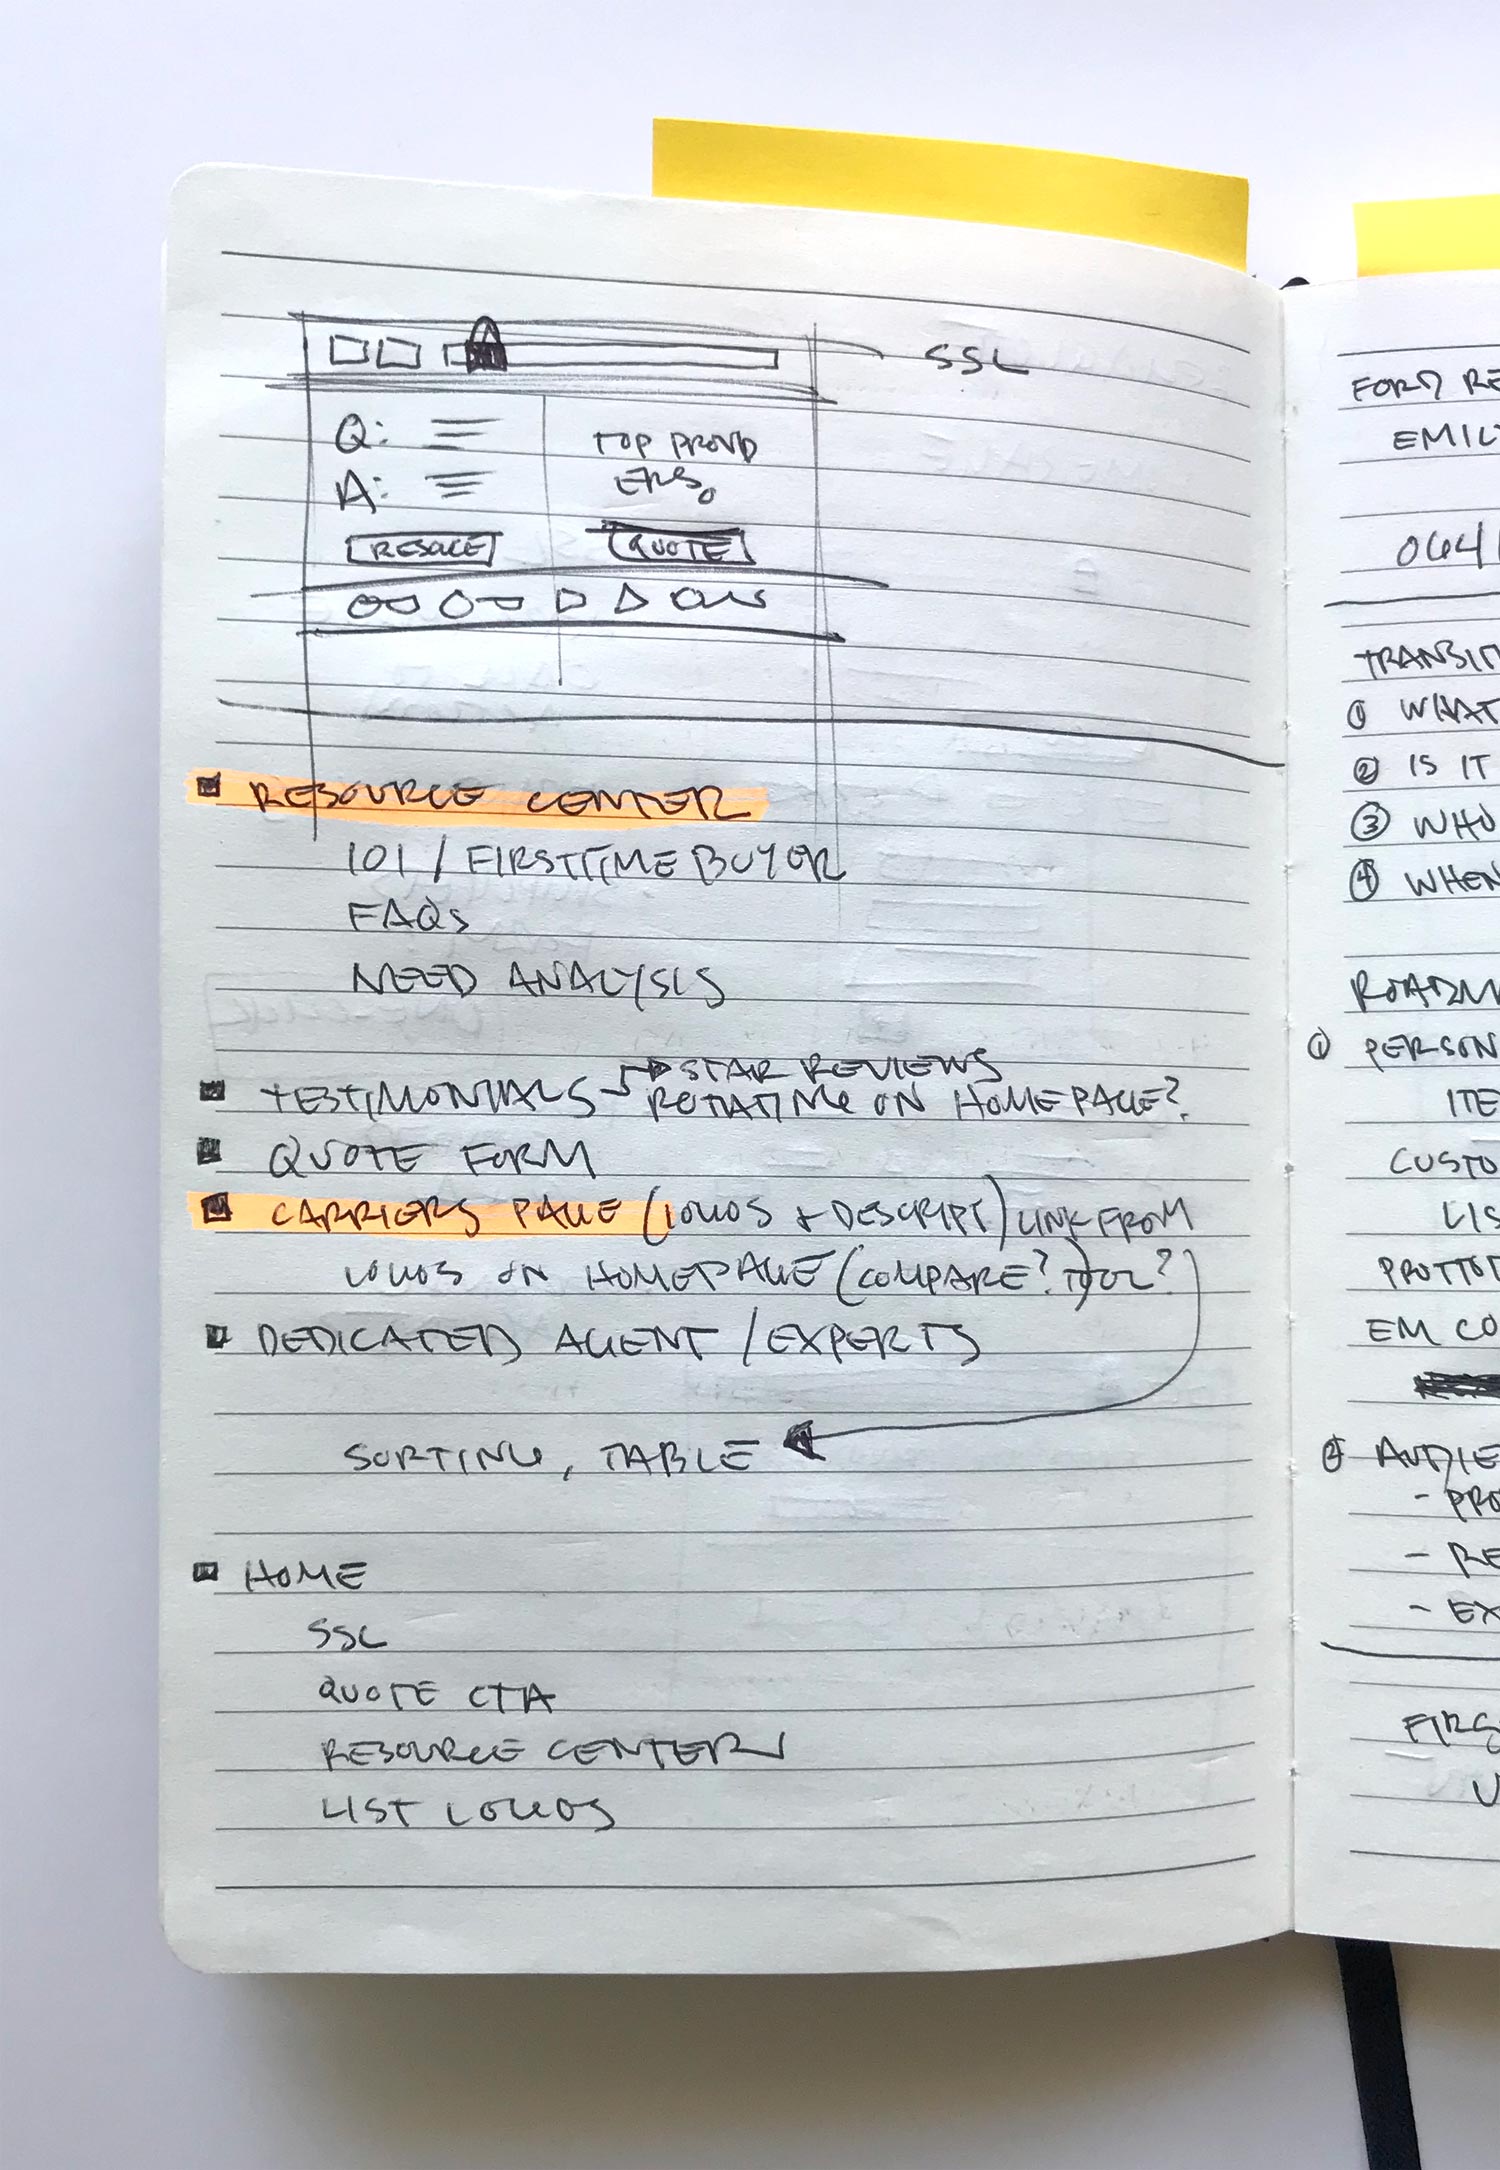 SSL
Q:
A:
TOP PROVID
ERS
QUOTE
RESOURCE CENTER
101 / FIRST TIME BUYER
FAQs
NEED ANALYSIS
TESTIMONIALS → STAR REVIEWS
ROTATING ON HOMEPAGE?
QUOTE FORM
CARRIERS PAGE (LOGOS + DESCRIPT) LINK FROM
LOGOS ON HOMEPAGE (COMPARE?) TOOL?
DEDICATED AGENT / EXPERTS
SORTING, TABLE
HOME
SSL
QUOTE CTA
RESOURCE CENTER
LIST LOGOS
FORM RE
EMIL
0641
① WHAT
② IS IT
③ WHO
④ WHEN
① PERSON
ITE
CUSTO
LIS
EM CO
② AUDIE
- PRO
- RE
- EX
FIRS